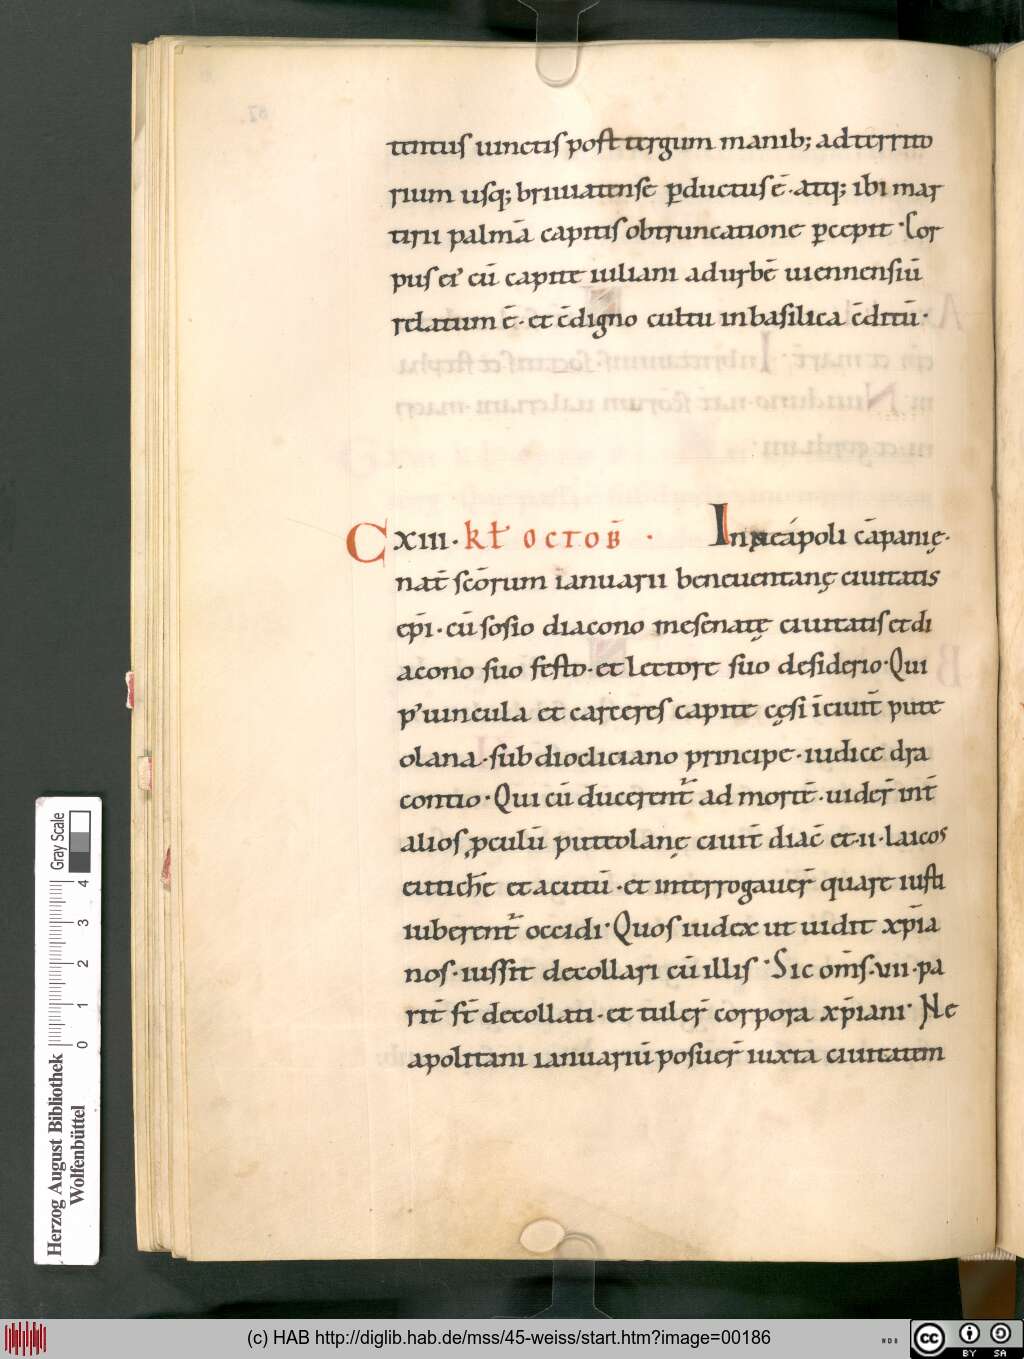 tentus uinctis post tergum manib; ad territo
rium usq; briuuatense p̄ductus ē · atq; ibi mar
tirii palmā capitis obtruncatione p̄cepit · Cor
pus ei' cū capite iuliani ad urbē uiennensiū
relatum ē · et c̄digno cultu in basilica c̄ditū ·
C XIII · kł OCTOB̄ · In neápoli cāpanię ·
nat̄ sc̄orum ianuarii beneuentanę ciuitatis
ep̄i · cū sosio diacono mesenatę ciuitatis et di
acono suo festo · et lectore suo desiderio · Qui
p' uincula et carceres capite cęsi ī ciuit̄ pute
olana · sub diocliciano principe · iudice dra
contio · Qui cū ducerent̄ ad mortē · uider̄ int̄
alios p̱culū puteolanę ciuit̄ diac̄ et · ii · laicos
eutichē et acutiū · et interrogauer̄ quare iusti
iuberent̄ occidi · Quos iudex ut uidit xp̄ia
nos · iussit decollari cū illis · Sic om̄s · vii · pa
rit̄ st̄ decollati · et tuler̄ corpora xp̄iani · Ne
apolitani ianuariū posuer̄ iuxta ciuitatem
Herzog August Bibliothek
Wolfenbüttel
0 1 2 3 4
Gray Scale
(c) HAB http://diglib.hab.de/mss/45-weiss/start.htm?image=00186
WDB
cc
BY SA